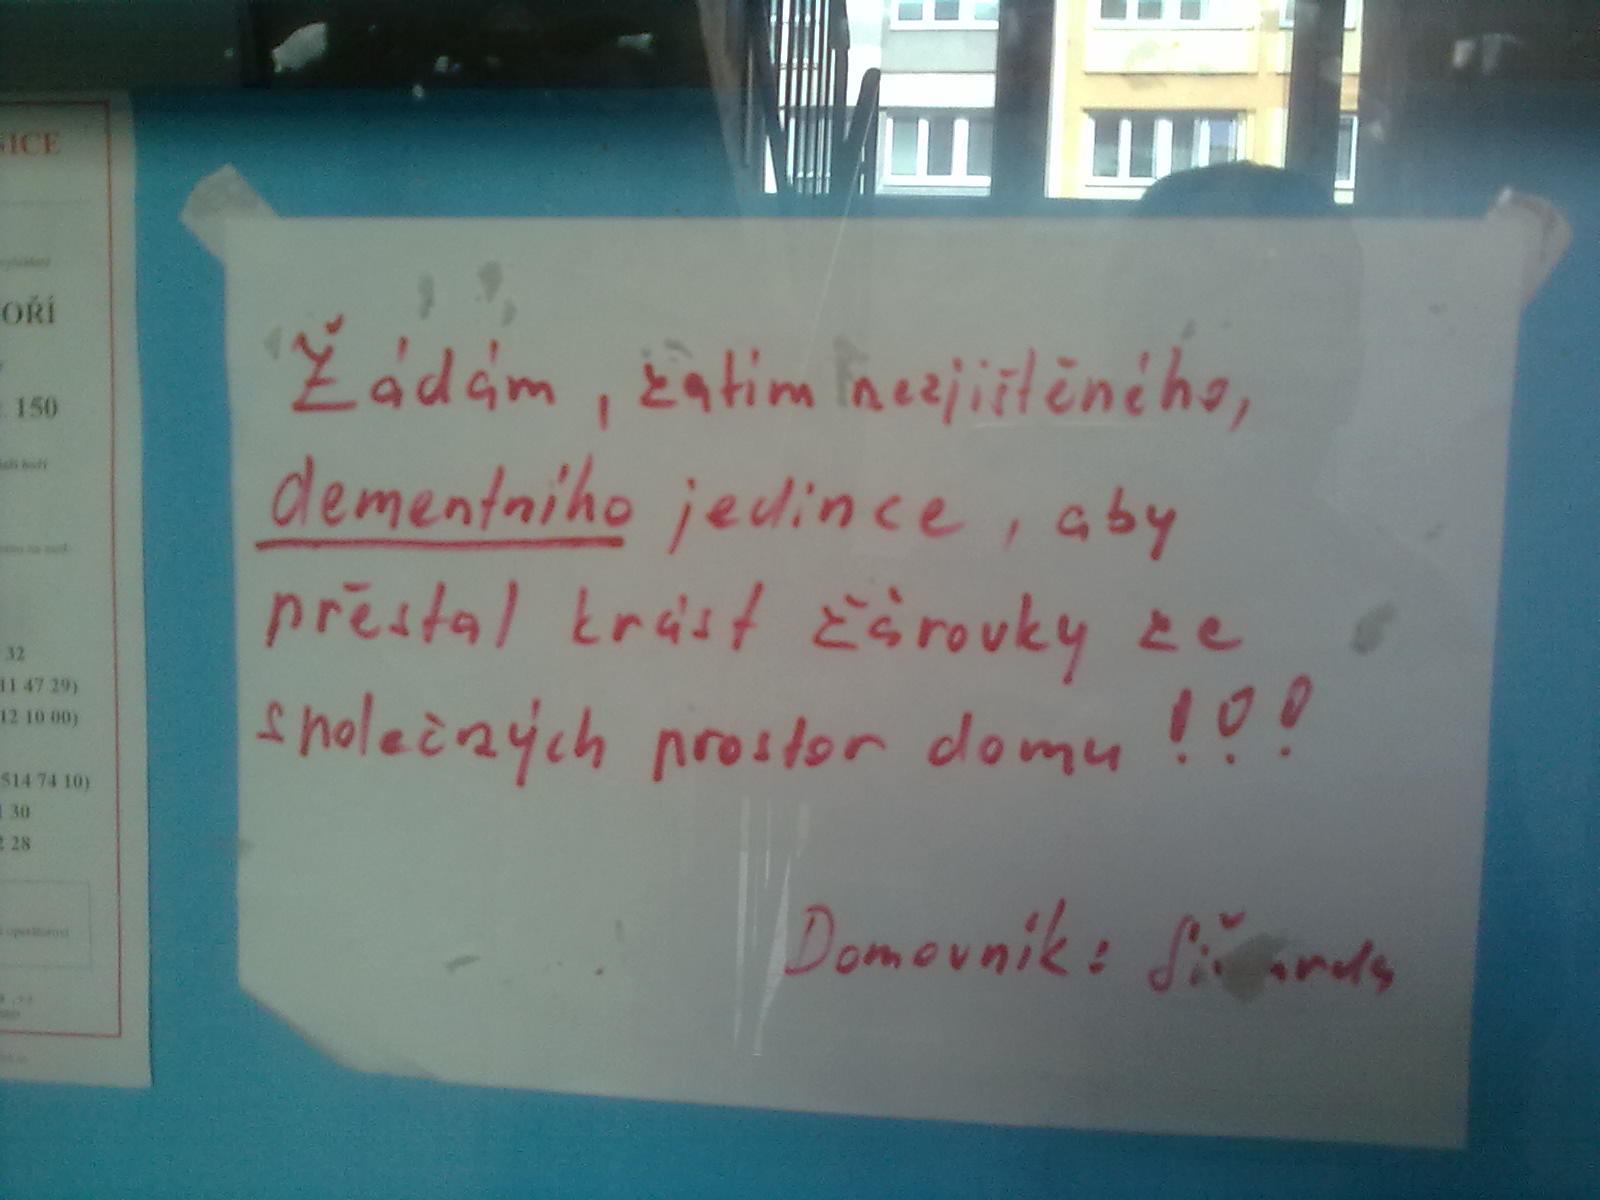 NICE
OŘÍ
150
32
11 47 29)
12 10 00)
514 74 10)
30
28
Žádám, zatím nezjištěného,
dementního jedince, aby
přestal krást žárovky ze
společných prostor domu !!!
Domovník: